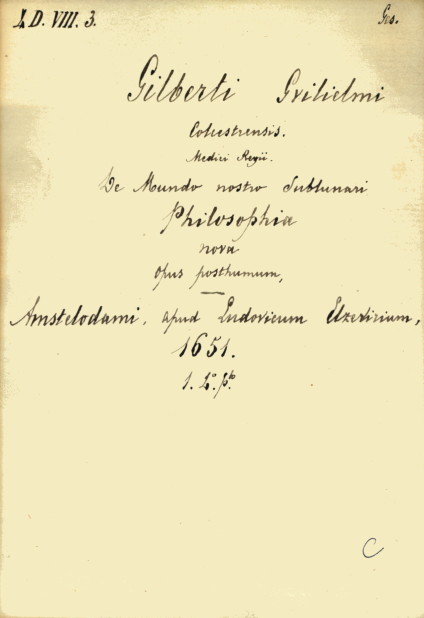 L D. VIII. 3.
Gilberti Gvilielmi
Colcestrensis.
Medici Regii.
De Mundo nostro Sublunari
Philosophia
nova
Opus posthumum,
Amstelodami, apud Ludovicum Elzevirium,
1651.
1.
C